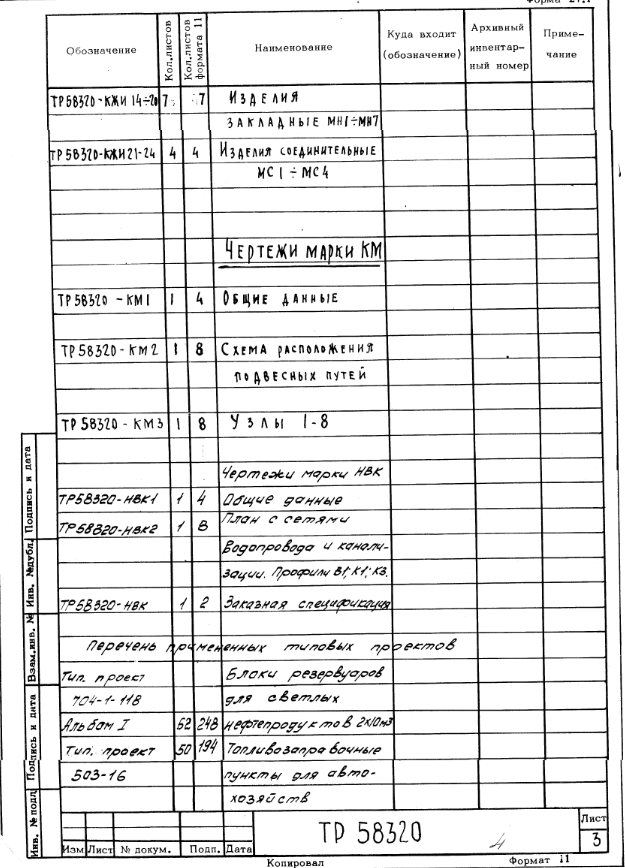 Форма 27.1
Обозначение Кол.листов Кол.листов формата 11 Наименование Куда входит (обозначение) Архивный инвентар-ный номер Приме-чание
ТР58320-КЖИ 14÷20 7 7 Изделия
закладные МН1÷МН7
ТР58320-КЖИ21-24 4 4 Изделия соединительные
МС1÷МС4
Чертежи марки КМ
ТР58320-КМ1 1 4 Общие данные
ТР58320-КМ2 1 8 Схема расположения
подвесных путей
ТР58320-КМ3 1 8 Узлы 1-8
Чертежи марки НВК
ТР58320-НВК1 1 4 Общие данные
ТР58320-НВК2 1 8 План с сетями
водопровода и канали-
зации. Профили В1; К1; К3.
ТР58320-НВК 1 2 Заказная спецификация
Перечень примененных типовых проектов
Тип. проект Блоки резервуаров
704-1-118 для светлых
Альбом I 62 248 нефтепродуктов 2х10м3
Тип. проект 50 194 Топливозаправочные
503-16 пункты для авто-
хозяйств
Инв. № подл. Подпись и дата Взам.инв. № Инв. №дубл. Подпись и дата
ТР 58320
4
Лист
3
Изм Лист № докум. Подп. Дата
Копировал Формат 11